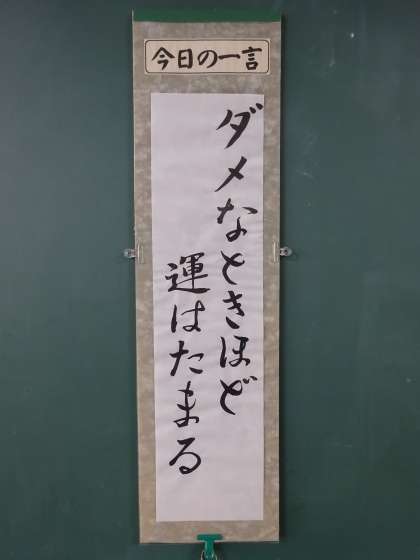 今日の一言
ダメなときほど
運はたまる